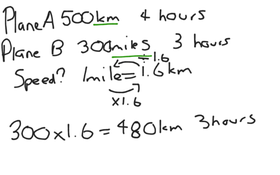 Plane A 500km 4 hours
Plane B 300miles 3 hours
÷1.6
Speed? 1mile=1.6km
×1.6
300×1.6=480km 3hours